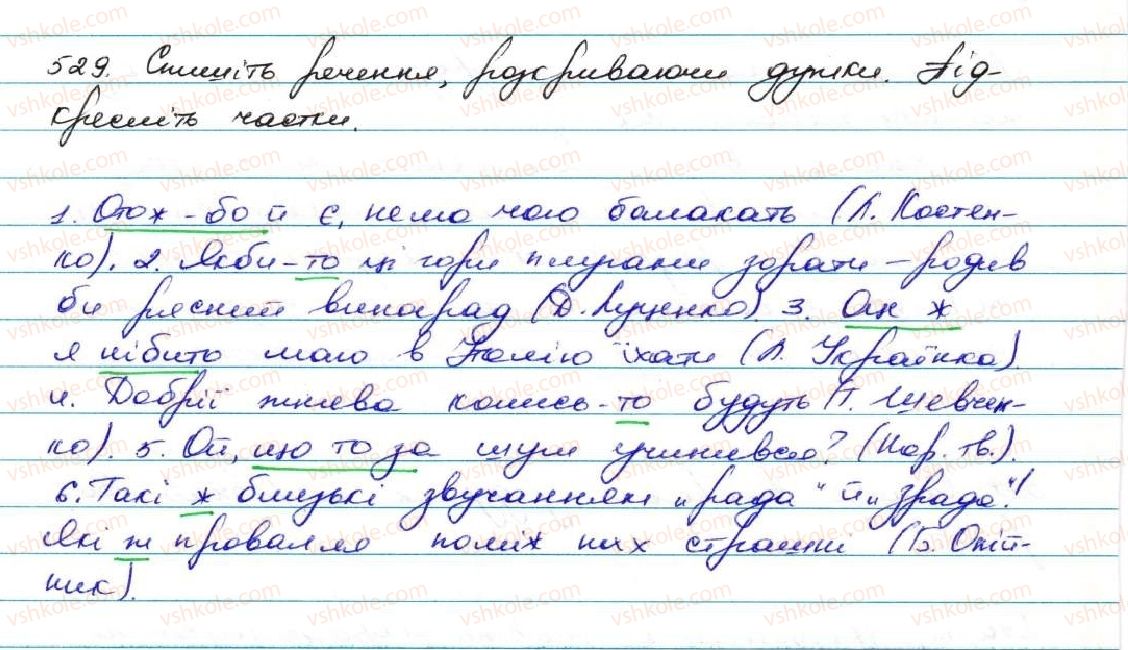 529. Спишіть речення, розкриваючи дужки. Під-
кресліть частки.
1. Отож-бо й є, нема чого балакать (Л. Костен-
ко). 2. Якби-то ці гори плугами зорати – родив
би рясний виноград (Д. Луценко). 3. Он ж
я нібито маю в Італію їхати (Л. Українка).
4. Добрії жнива колись-то будуть (Т. Шевчен-
ко). 5. Ой, що то за шум учинився? (Нар. тв.).
6. Такі ж близькі звучанням „рада" й „зрада"!
Які ж провалля поміж них страшні (Б. Олій-
ник).
vshkole.com